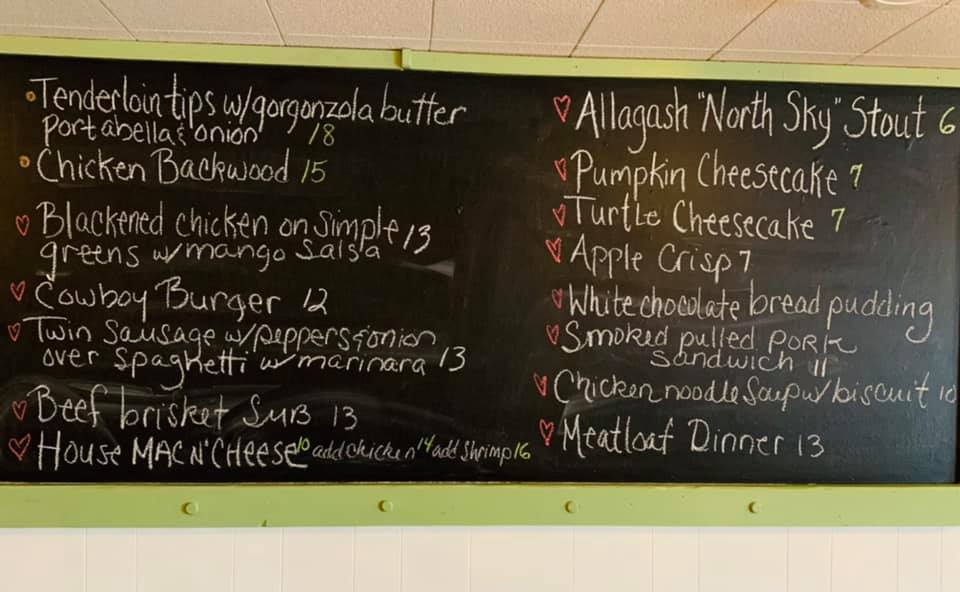 Tenderloin tips w/gorgonzola butter
portabella & onion 18
Chicken Backwood 15
Blackened chicken on simple 13
greens w/mango salsa
Cowboy Burger 12
Twin Sausage w/peppers & onion
over spaghetti w/marinara 13
Beef brisket SUB 13
House MAC N' CHEESE 10 add chicken 14 add shrimp 16
Allagash "North Sky" Stout 6
Pumpkin Cheesecake 7
Turtle Cheesecake 7
Apple Crisp 7
White chocolate bread pudding
Smoked pulled PORK
sandwich 11
Chicken noodle Soup w/ biscuit 10
Meatloaf Dinner 13